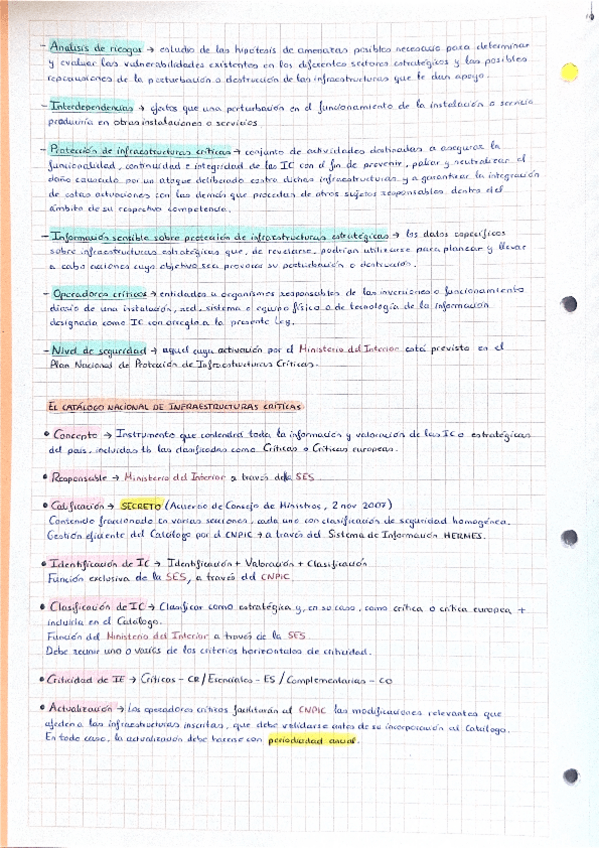 - Análisis de riesgos → estudio de las hipótesis de amenazas posibles necesario para determinar
y evaluar las vulnerabilidades existentes en los diferentes sectores estratégicos y las posibles
repercusiones de la perturbación o destrucción de las infraestructuras que le dan apoyo.
- Interdependencias → efectos que una perturbación en el funcionamiento de la instalación o servicio
produciría en otras instalaciones o servicios
- Protección de infraestructuras críticas → conjunto de actividades destinadas a asegurar la
funcionalidad, continuidad e integridad de las IC con el fin de prevenir, paliar y neutralizar el
daño causado por un ataque deliberado contra dichas infraestructuras y a garantizar la integración
de estas actuaciones con las demás que procedan de otros sujetos responsables dentro del
ámbito de su respectiva competencia.
- Información sensible sobre protección de infraestructuras estratégicas → los datos específicos
sobre infraestructuras estratégicas que, de revelarse, podrían utilizarse para planear y llevar
a cabo acciones cuyo objetivo sea provocar su perturbación o destrucción.
- Operadores críticos → entidades u organismos responsables de las inversiones o funcionamiento
diario de una instalación, red, sistema o equipo físico o de tecnología de la información
designada como IC con arreglo a la presente Ley.
- Nivel de seguridad → aquel cuya activación por el Ministerio del Interior está previsto en el
Plan Nacional de Protección de Infraestructuras Críticas.
EL CATÁLOGO NACIONAL DE INFRAESTRUCTURAS CRÍTICAS
• Concepto → Instrumento que contendrá toda la información y valoración de las IC o estratégicas
del país, incluidas tb las clasificadas como Críticas o Críticas europeas.
• Responsable → Ministerio del Interior a través de la SES
• Calificación → SECRETO (Acuerdo de Consejo de Ministros, 2 nov 2007)
Contenido fraccionado en varias secciones, cada una con clasificación de seguridad homogénea.
Gestión eficiente del Catálogo por el CNPIC → a través del Sistema de Información HERMES.
• Identificación de IC → Identificación + Valoración + Clasificación
Función exclusiva de la SES, a través del CNPIC.
• Clasificación de IC → Clasificar como estratégica y, en su caso, como crítica o crítica europea +
incluirla en el Catálogo.
Función del Ministerio del Interior a través de la SES
Debe reunir uno o varios de los criterios horizontales de criticidad.
• Criticidad de IE → Críticas - CR / Esenciales - ES / Complementarias - CO
• Actualización → Los operadores críticos facilitarán al CNPIC las modificaciones relevantes que
afecten a las infraestructuras inscritas, que debe validarse antes de su incorporación al Catálogo.
En todo caso, la actualización debe hacerse con periodicidad anual.